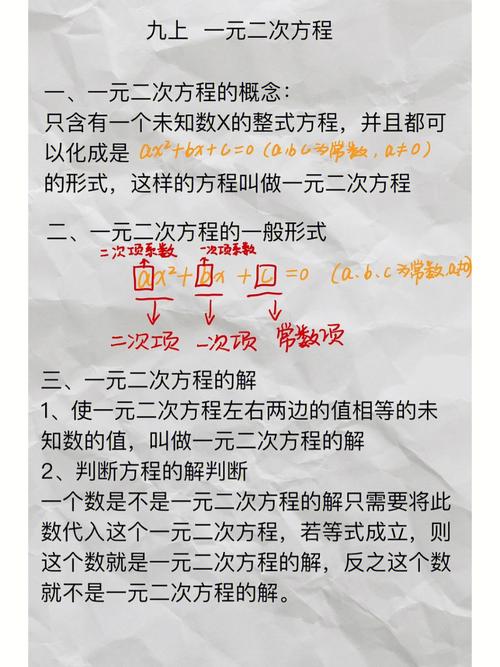 九上 一元二次方程
一、一元二次方程的概念：
只含有一个未知数X的整式方程，并且都可
以化成是 ax²+bx+c=0（a.b.c为常数，a≠0）
的形式，这样的方程叫做一元二次方程
二、一元二次方程的一般形式
二次项系数 一次项系数
ax²+bx+c=0 （a、b、c为常数，a≠0）
二次项 一次项 常数项
三、一元二次方程的解
1、使一元二次方程左右两边的值相等的未
知数的值，叫做一元二次方程的解
2、判断方程的解判断
一个数是不是一元二次方程的解只需要将此
数代入这个一元二次方程，若等式成立，则
这个数就是一元二次方程的解，反之这个数
就不是一元二次方程的解。